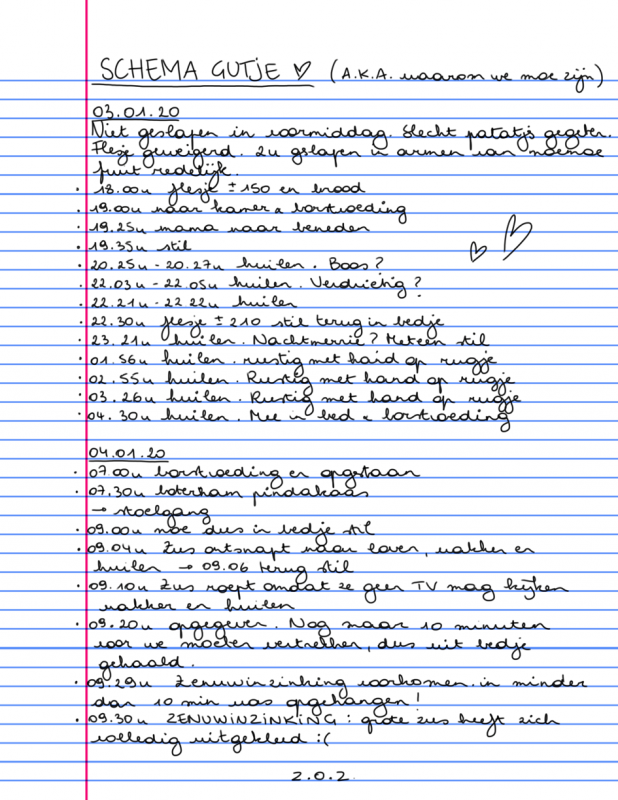 SCHEMA GUTJE ♡ (A.K.A. waarom we moe zijn)
03.01.20
Niet geslapen in voormiddag. Slecht patatjes gegeten.
Flesje geweigerd. 2u geslapen in armen van moemoe
fruit redelijk.
· 18.00u flesje ± 150 en brood
· 19.00u naar kamer & borstvoeding
· 19.25u mama naar beneden
· 19.35u stil
· 20.25u - 20.27u huilen. Boos?
· 22.03u - 22.05u huilen. Verdrietig?
· 22.21u - 22.22u huilen
· 22.30u flesje ± 210 stil terug in bedje
· 23.21u huilen. Nachtmerrie? Meteen stil
· 01.56u huilen. rustig met hand op rugje
· 02.55u huilen. Rustig met hand op rugje
· 03.26u huilen. Rustig met hand op rugje
· 04.30u huilen. Mee in bed & borstvoeding
04.01.20
· 07.00u borstvoeding en opgestaan
· 07.30u boterham pindakaas
→ stoelgang
· 09.00u moe dus in bedje stil
· 09.04u Zus ontsnapt naar boven, wakker en
huilen → 09.06 terug stil
· 09.10u Zus roept omdat ze geen TV mag kijken
wakker en huilen
· 09.20u opgegeven. Nog maar 10 minuten
voor we moeten vertrekken, dus uit bedje
gehaald.
· 09.29u Zenuwinzinking voorkomen. in minder
dan 10 min was opgehangen!
· 09.30u ZENUWINZINKING: grote zus heeft zich
volledig uitgekleed :(
2.0.2